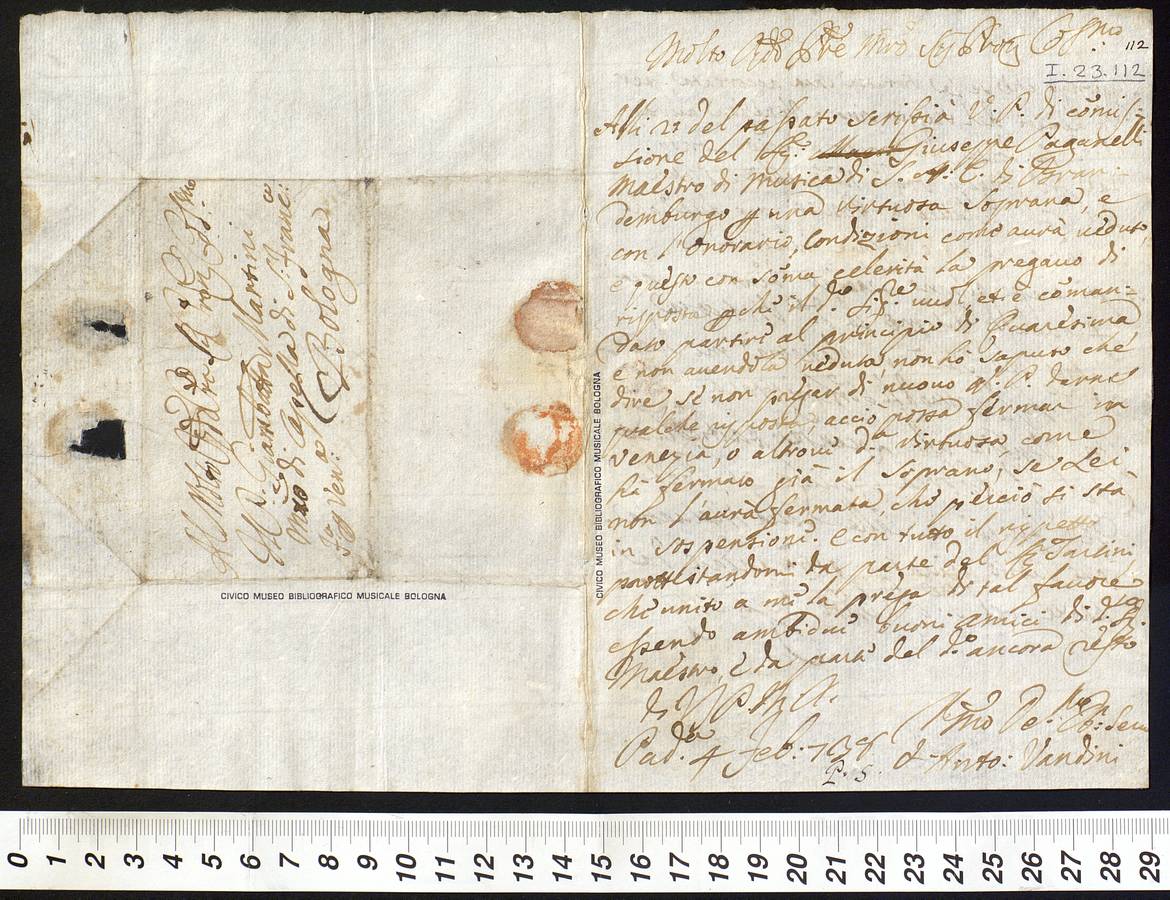 Al Molto
Il P. Giambatta Martini
Mro di Cappella di S. Franc:co
Per Ven:a Bologna
CIVICO MUSEO BIBLIOGRAFICO MUSICALE BOLOGNA
CIVICO MUSEO BIBLIOGRAFICO MUSICALE BOLOGNA
112
I. 23. 112
Molto Rdo Pre Mro Sig Pron Cosmo
Alli 21 del passato scrissi à V. P. di comis-
sione del Sig: Giuseppe Paganelli
Maestro di Musica di S. A. S. di Bran-
demburgo p una virtuosa Soprana, e
con l'onorario, condizioni come aurà ueduto,
e questo con soma celerità la pregauo di
risposta pche il d.o Sig.re uuol, et è coman=
dato partire al principio di Quaresima,
e non auendola ueduta, non hò saputo che
dire se non pregar di nuouo V. P. darne
qualche risposta, acciò possa fermar in
Venezia, o altroue d.a virtuosa, come
hà fermato già il soprano, se Lei
non l'aurà fermata, che perciò si stà
in sospensione. E con tutto il rispetto
da parte del Sig Tartini
che unito a me la prega di tal fauore
essendo ambidue buoni amici di d.o Sig.
Maestro, e da parte del d.o ancora resto
di V. P. M. R.
Pad.a 4 Feb: 1738
Vmo De.mo Ob: Seru
D. Anto: Vandini
P. S.
0 1 2 3 4 5 6 7 8 9 10 11 12 13 14 15 16 17 18 19 20 21 22 23 24 25 26 27 28 29